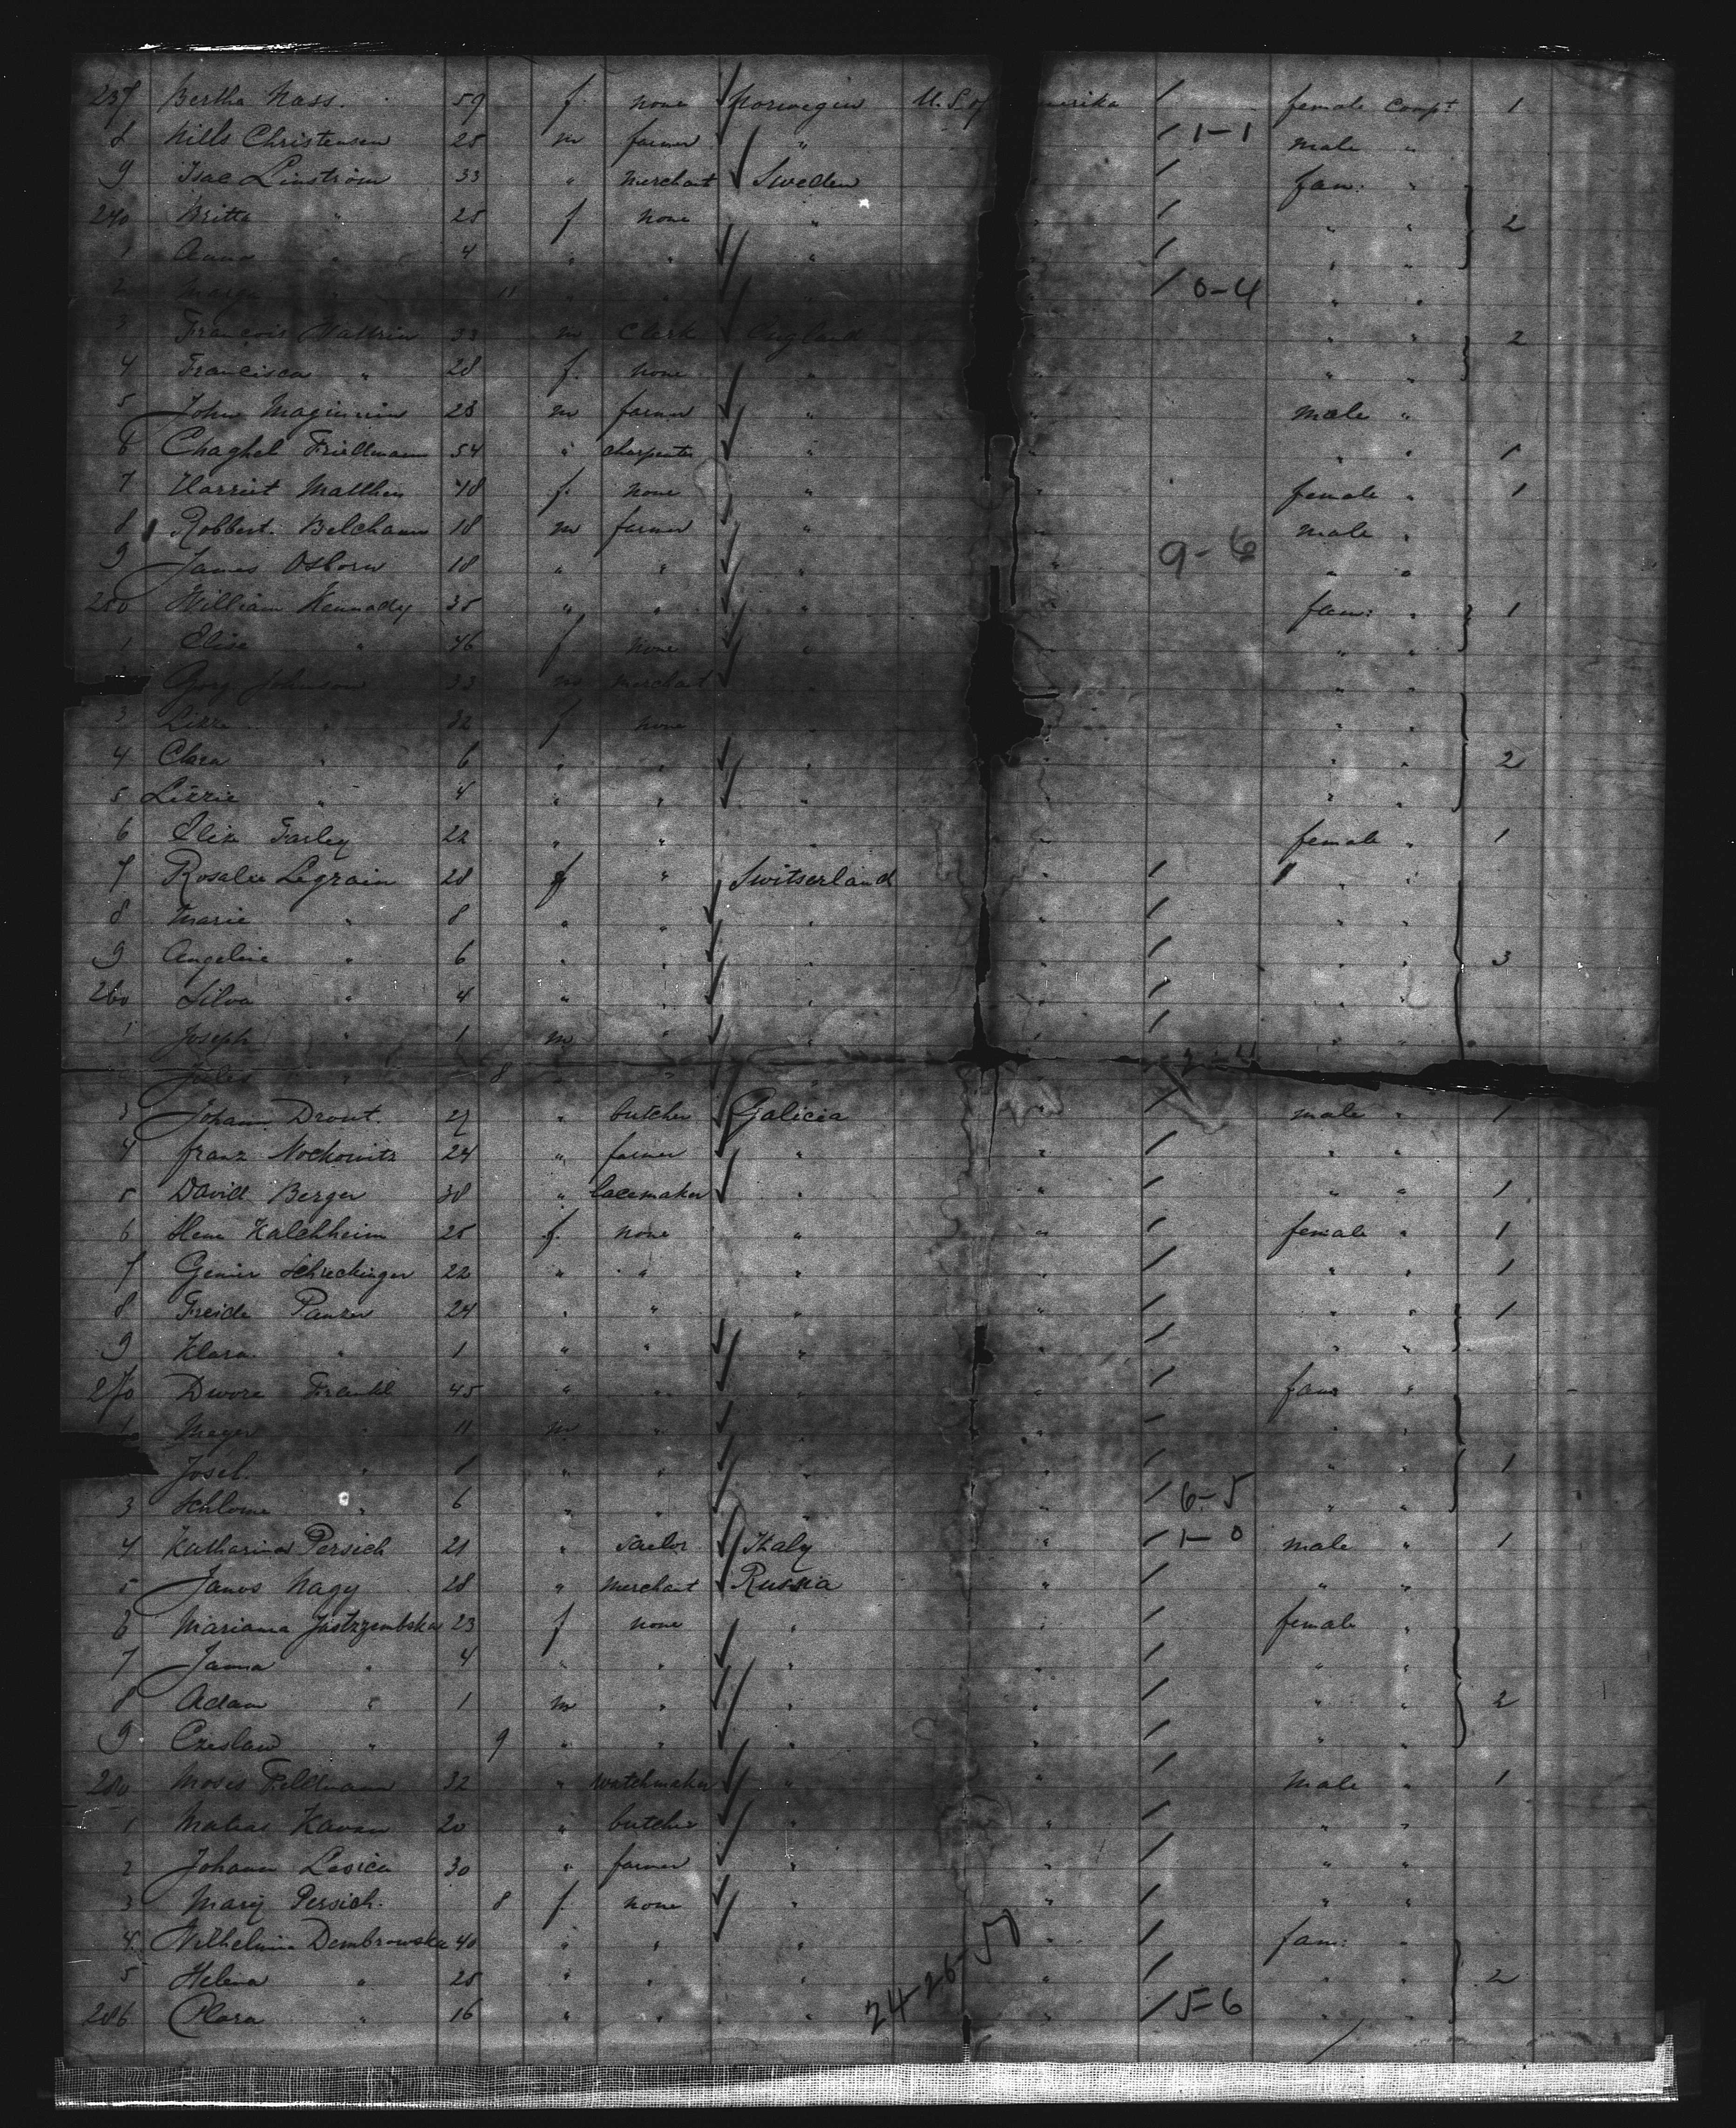 237 Bertha Nass. 59 f. none Norwegen U. S. of erika / female Compt 1
8 Nills Christensen 25 m farmer " / 1-1 male "
9 Isac Linström 33 " merchant Sweden " / fam: "
240 Britta " 25 f none " " / " " 2
1 Anna " 4 " " " " / " "
2 " 11 " " " " / 0-4 " "
3 François 33 m Clerk England " " 2
4 Francisca " 28 f. none " " " "
5 John Maginnin 23 m farmer " " male "
6 Chaghel Friedmann 54 " charpenter " " " " 1
7 Harriet Matthew 48 f. none " " female " 1
8 Robbert. Belcham 18 m farmer " " male "
9 James Osborn 18 " " " " 9-6 " "
250 William Kennady 35 " " " " fam: " 1
1 Elise " 46 f none " " "
Gorg Johnson 33 m merchant " " "
3 Lizze " 32 f none " " "
4 Clara " 6 " " " " " " 2
5 Lizzie " 4 " " " " " "
6 Eliza Farley 22 " " " " female " 1
7 Rosalie Legrain 28 f " Switserland " / " "
8 Marie " 8 " " " " / " "
9 Angeline " 6 " " " " / " " 3
260 Silva " 4 " " " " / " "
1 Joseph " 1 m " " " / " "
Jules " 8 " " "
3 Johann Drout. 27 " butcher Galicia " / male " 1
4 franz Nockowitz 24 " farmer " " / " "
5 David Berger 38 " lacemaker " " / " " 1
6 Kalchheim 25 f. none " " / female " 1
7 Schrechinger 22 " " " " / " " 1
8 Freide Panzer 24 " " " " / " " 1
9 Klara " 1 " " " " / " "
270 Dwora Frenkel 45 " " " " / fam "
1 Meyer " 11 m " " " / " "
Josel. " " " " " / " " 1
3 Schlome " 6 " " " " / 6-5 " "
4 Katharina Persich 21 " sailor Italy " / 1-0 male " 1
5 Janos Nagy 28 " merchant Russia " / " "
6 Mariana Jastrzembska 23 f none " " / female "
7 Janna " 4 " " " " / " "
8 Adam " 1 m " " " / " " 2
9 Czeslaw " 9 " " " " / " "
280 Moses Felldmann 32 " watchmaker " " / Male " 1
1 Matias Kavan 20 " butcher " " / " "
2 Johann Lasica 30 " farmer " " / " "
3 Marij Persich. 8 f. none " " / " "
4 Wilhelmina Dembrowska 40 " " " " / fam: "
5 Helena " 25 " " " " / " " 2
286 Clara " 16 " " " " / 5-6 " "
24-26-50